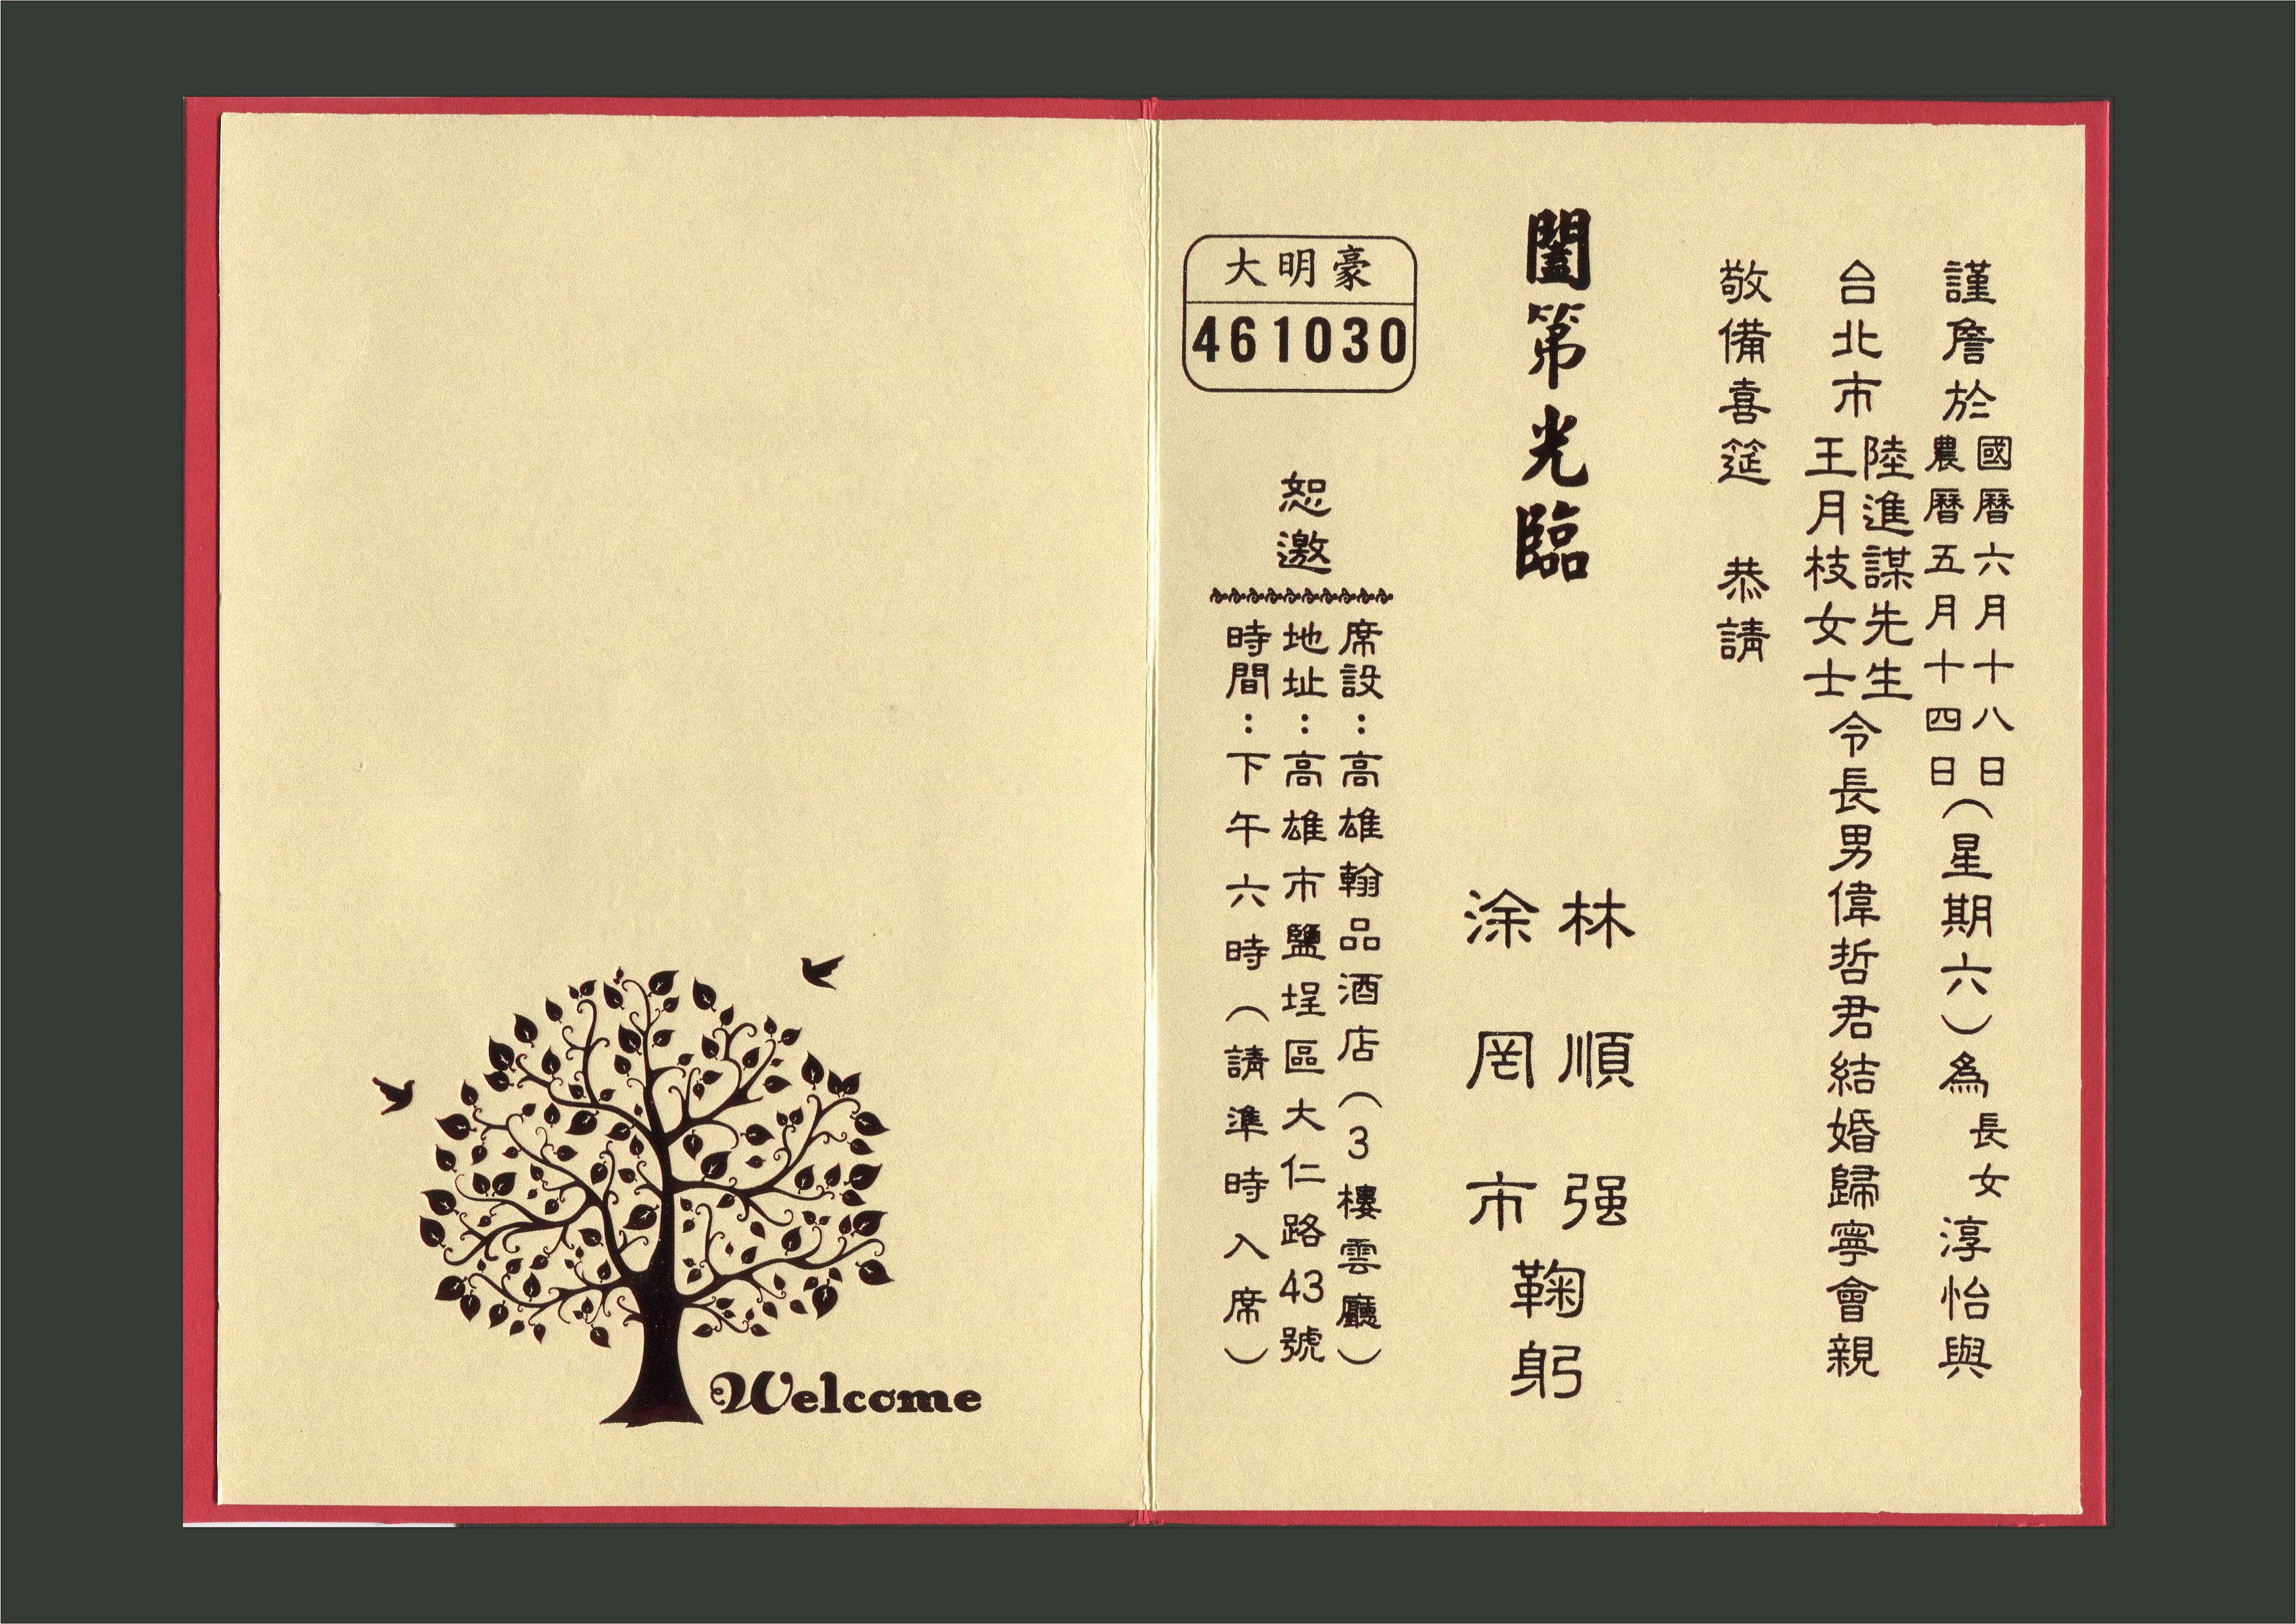 謹詹於國曆六月十八日農曆五月十四日(星期六)為長女淳怡與
台北市陸進謀先生王月枝女士令長男偉哲君結婚歸寧會親
敬備喜筵 恭請
闔第光臨
林順强
涂罔市
鞠躬
恕邀
席設:高雄翰品酒店(3樓雲廳)
地址:高雄市鹽埕區大仁路43號
時間:下午六時(請準時入席)
大明豪
461030
Welcome